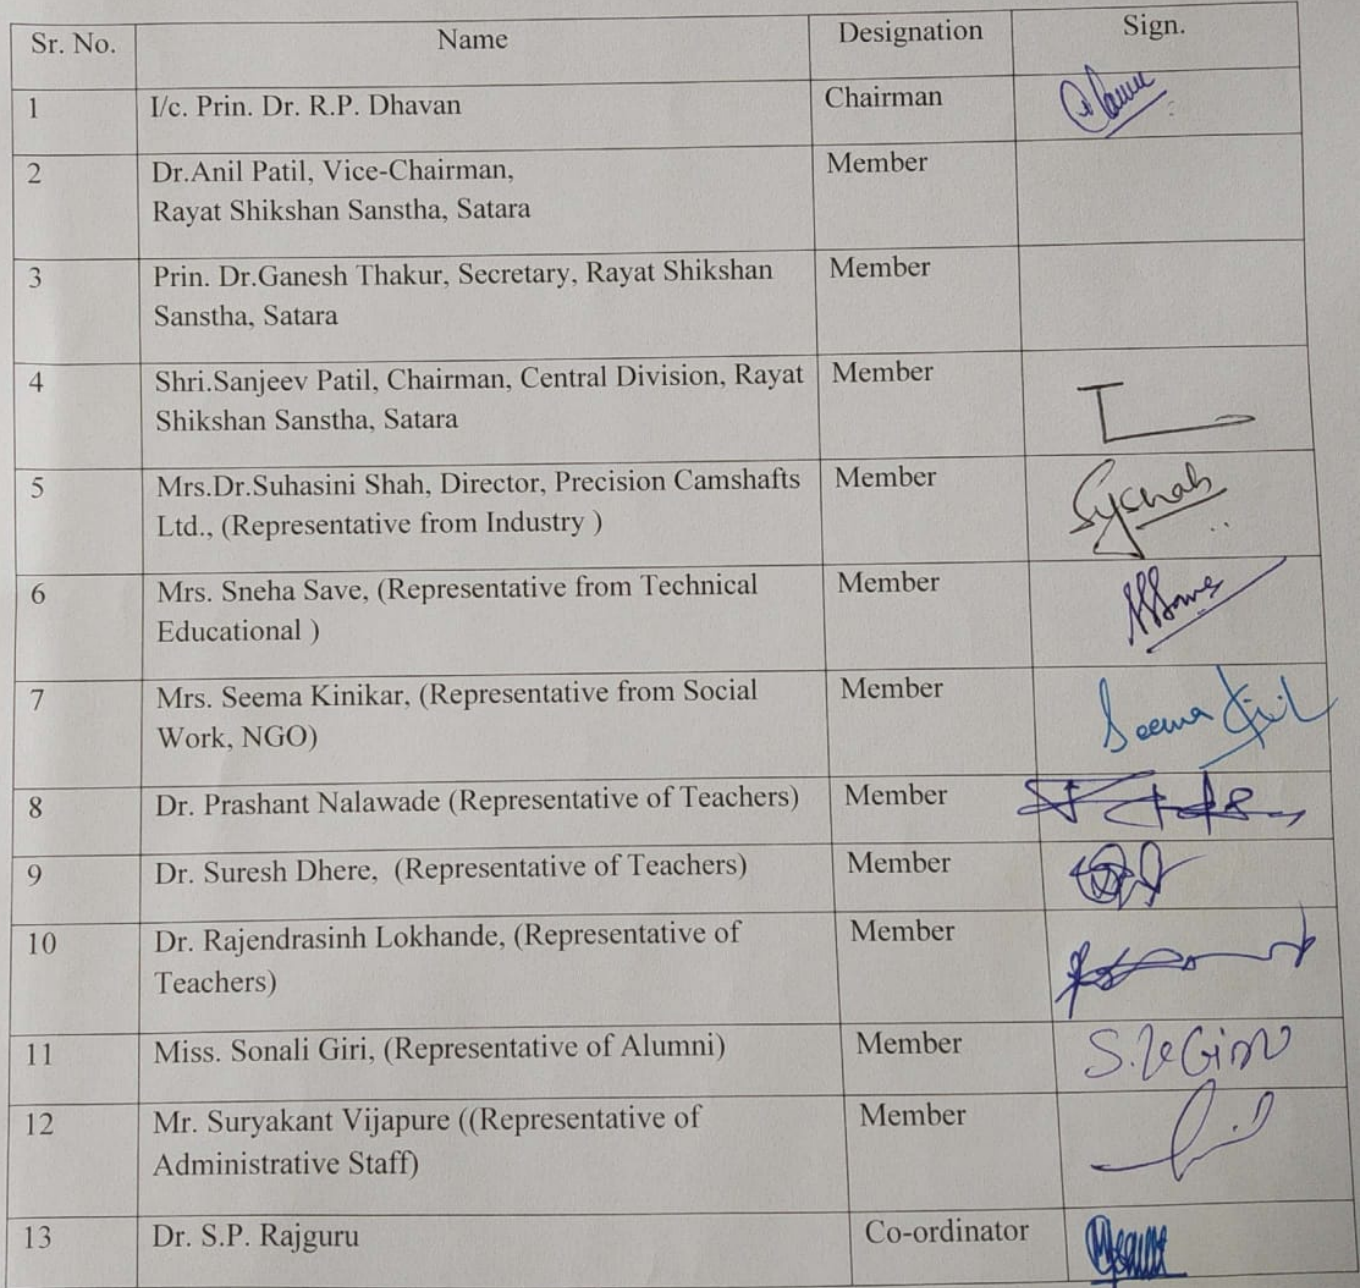 Sr. No. Name Designation Sign.
1 I/c. Prin. Dr. R.P. Dhavan Chairman
2 Dr.Anil Patil, Vice-Chairman, Member
Rayat Shikshan Sanstha, Satara
3 Prin. Dr.Ganesh Thakur, Secretary, Rayat Shikshan Member
Sanstha, Satara
4 Shri.Sanjeev Patil, Chairman, Central Division, Rayat Member
Shikshan Sanstha, Satara
5 Mrs.Dr.Suhasini Shah, Director, Precision Camshafts Member
Ltd., (Representative from Industry )
6 Mrs. Sneha Save, (Representative from Technical Member
Educational )
7 Mrs. Seema Kinikar, (Representative from Social Member Seema
Work, NGO)
8 Dr. Prashant Nalawade (Representative of Teachers) Member
9 Dr. Suresh Dhere, (Representative of Teachers) Member
10 Dr. Rajendrasinh Lokhande, (Representative of Member
Teachers)
11 Miss. Sonali Giri, (Representative of Alumni) Member
12 Mr. Suryakant Vijapure ((Representative of Member
Administrative Staff)
13 Dr. S.P. Rajguru Co-ordinator